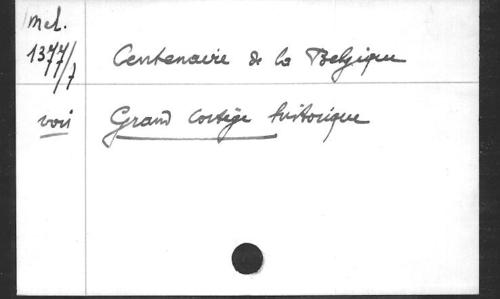 Mel.
1377/7
Centenaire de la Belgique
voir
Grand Cortège historique